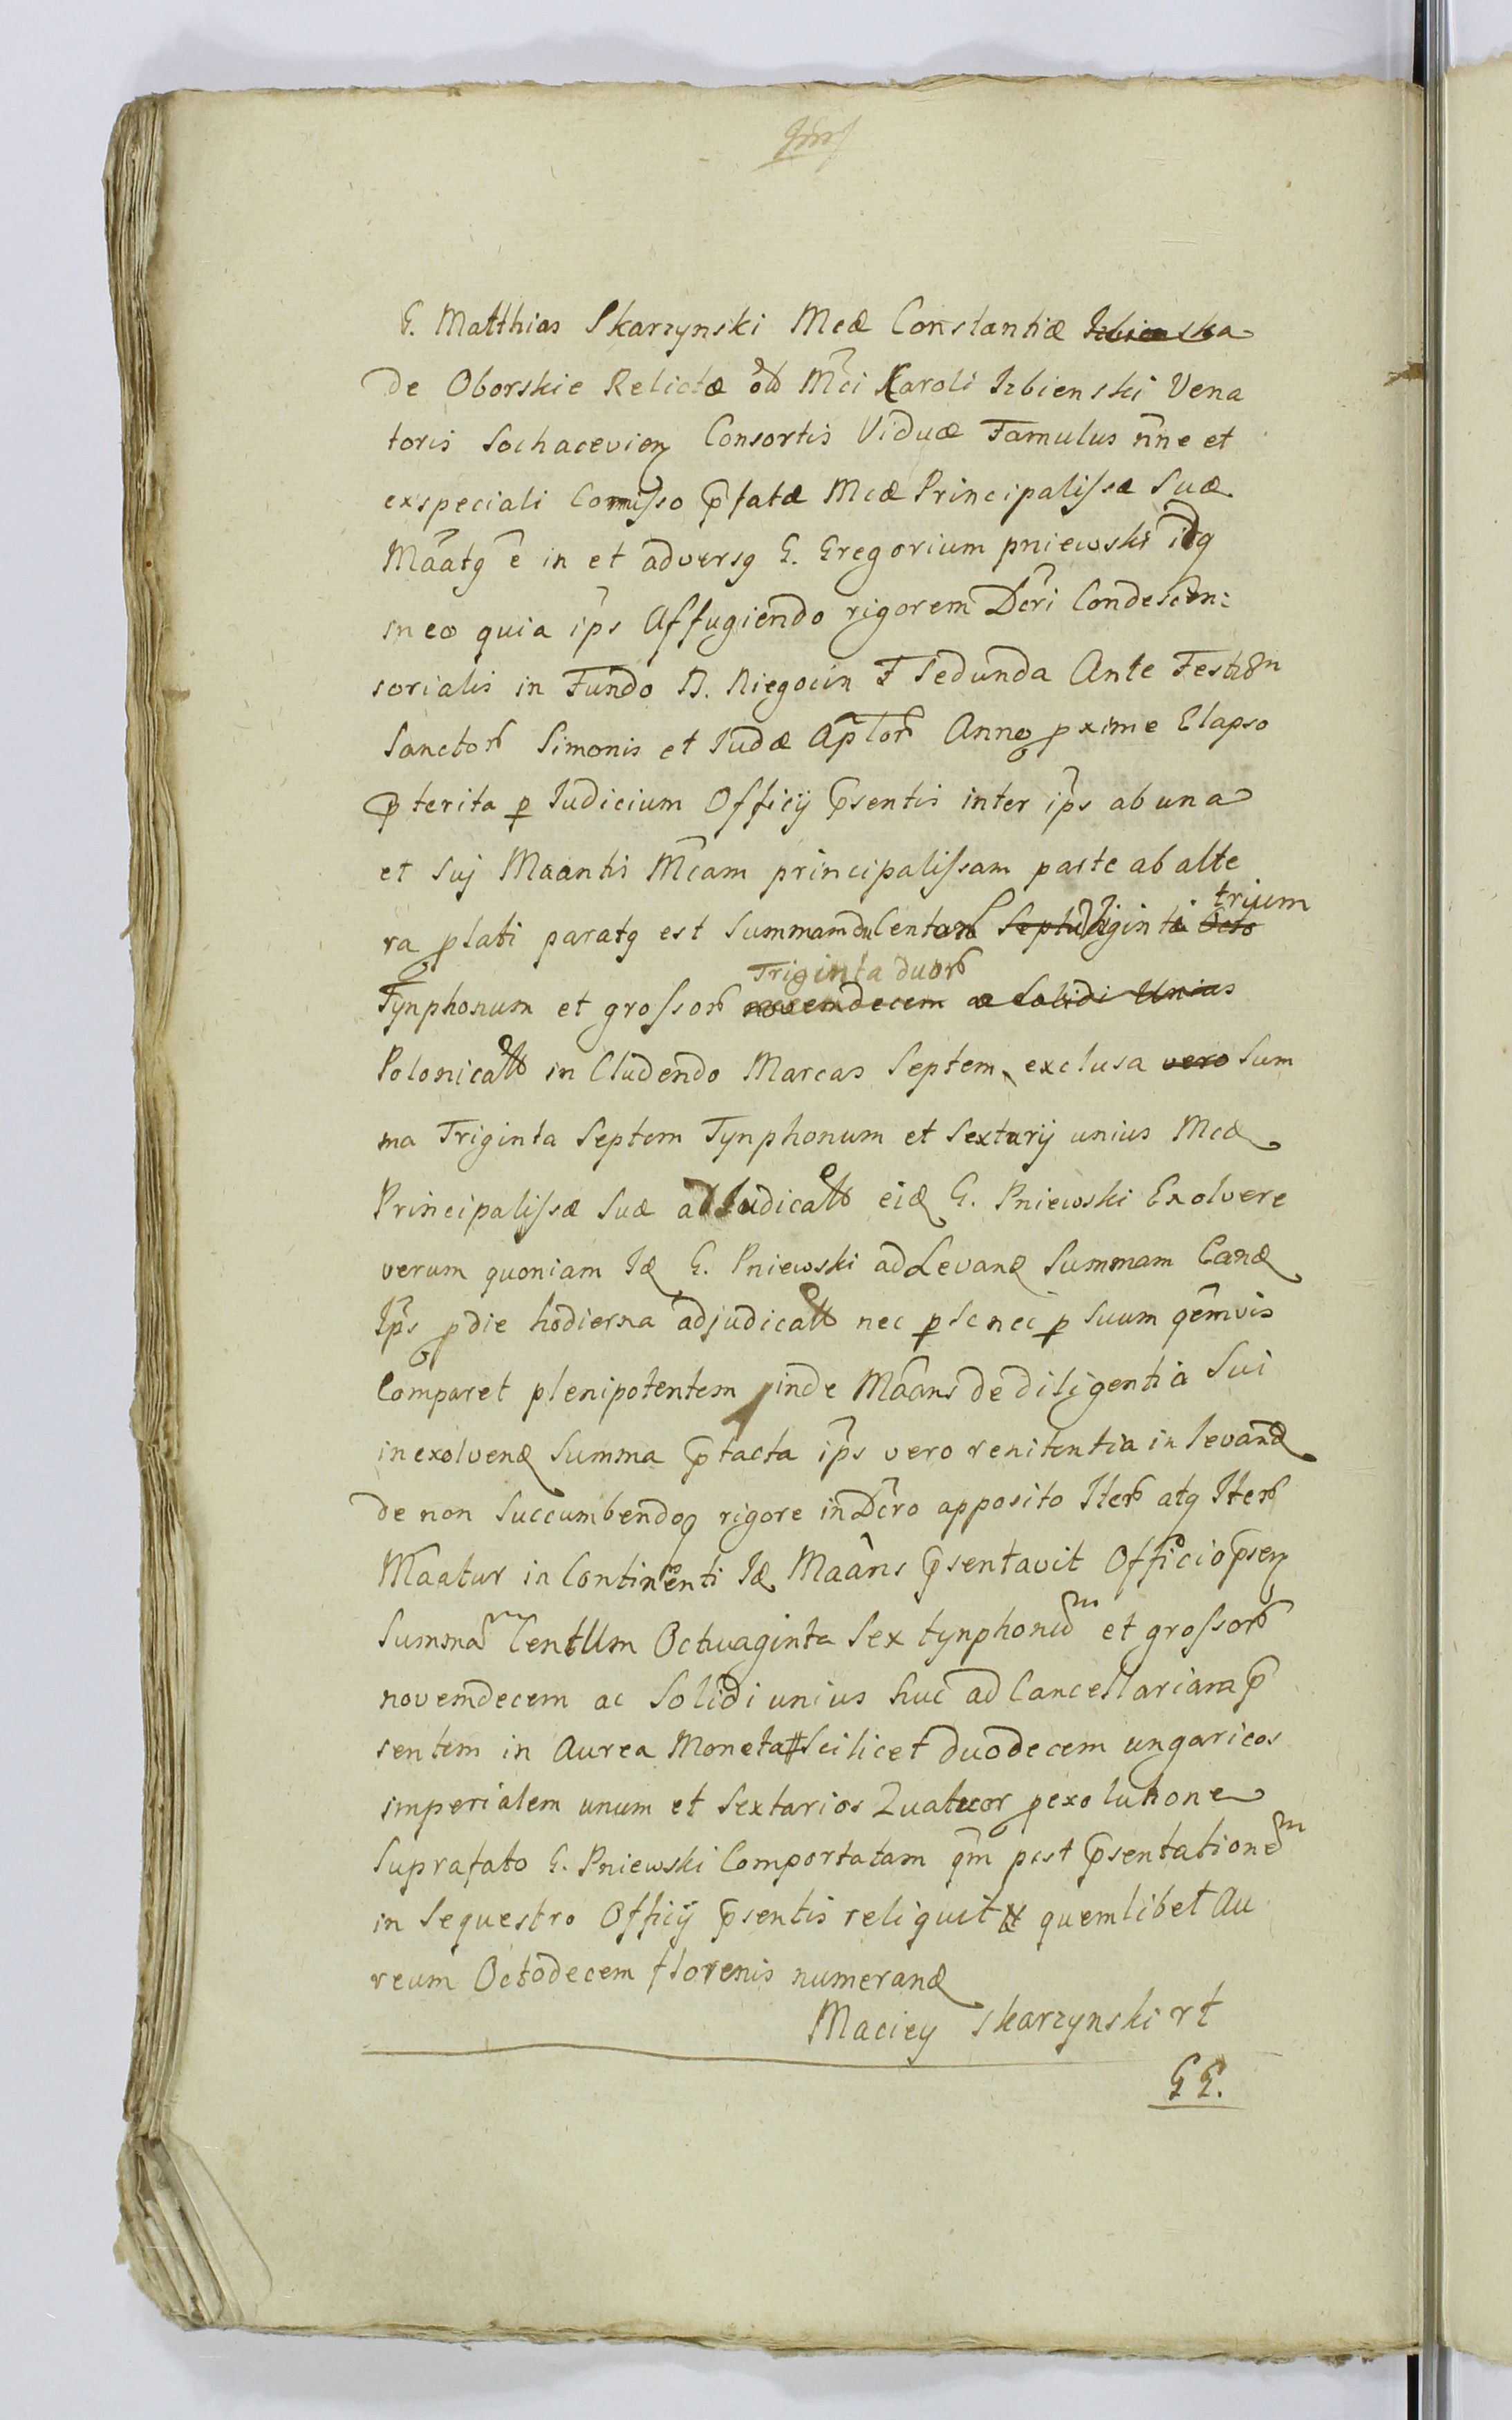 G. Matthias Skarzynski Mcæ Constantiæ Izbienska
de Oborskie Relictæ olῖ Mci Karoli Izbienski Vena
toris Sochacevien Consortis Viduæ Famulus nne et
exspeciali Comisso p̃fatæ Mcæ Principalissæ Suæ
Maatq e in et adversq G. Gregorium pniewski idq
in eo quia ips Affugiendo rigorem Dcri Condescen:
sorialis in Fundo B. Niegocin F Secunda Ante Festum
Sanctor Simonis et Judæ Aplor Anno pxime Elapso
p̃terita p Judicium Officij p̃sentis inter ips ab una
et Suj Maantis Mcam principalissam parte ab alte
trium
ra plati paratq est Summam du Centor Septuaginta Octo
Triginta duor
Tynphonum et grossor novemdecem ac Solidi Unius
Polonical in Cludendo Marcas Septem exclusa vero Sum
ma Triginta Septem Tynphonum et Sextarij unius Mcæ
Principalissæ Suæ adJudical eid G. Pniewski Exolvere
verum quoniam Id G. Pniewski ad Levand Summam Eand
Ips p die hodierna adjudical nec p se nec p Suum qemvis
Comparet plenipotentem inde Maans de diligentia Sui
in exolvend Summa p̃tacta ips vero renitentia in levand
de non Succumbendoq rigore in Dcro apposito Iter atq Iter
Maatur in Continenti Id Maans p̃sentavit Officio p̃sen
Summam Centum Octuaginta Sex tynphonum et grossor
novemdecem ac Solidi unius huc ad Cancellariam p̃
sentem in Aurea Moneta # Scilicet duodecem ungaricos
imperialem unum et Sextarios Quatuor p exolutione
Suprafato G. Pniewski Comportatam qm post p̃sentationem
in Sequestro Officij p̃sentis reliquit # quemlibet Au
reum Octodecem florenis numerand
Maciey Skarzynski rt
GG.